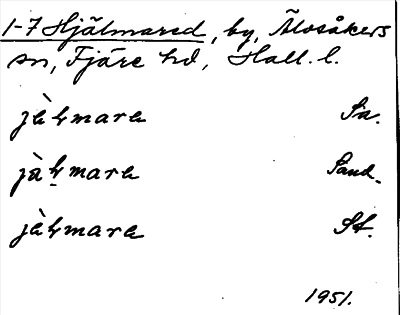 1-7 Hjälmared, by, Älvsåkers
sn, Fjäre hd, Hall. l.
jàɫmara Sa.
jàɫmara Sand.
jàɫmara St.
1951.